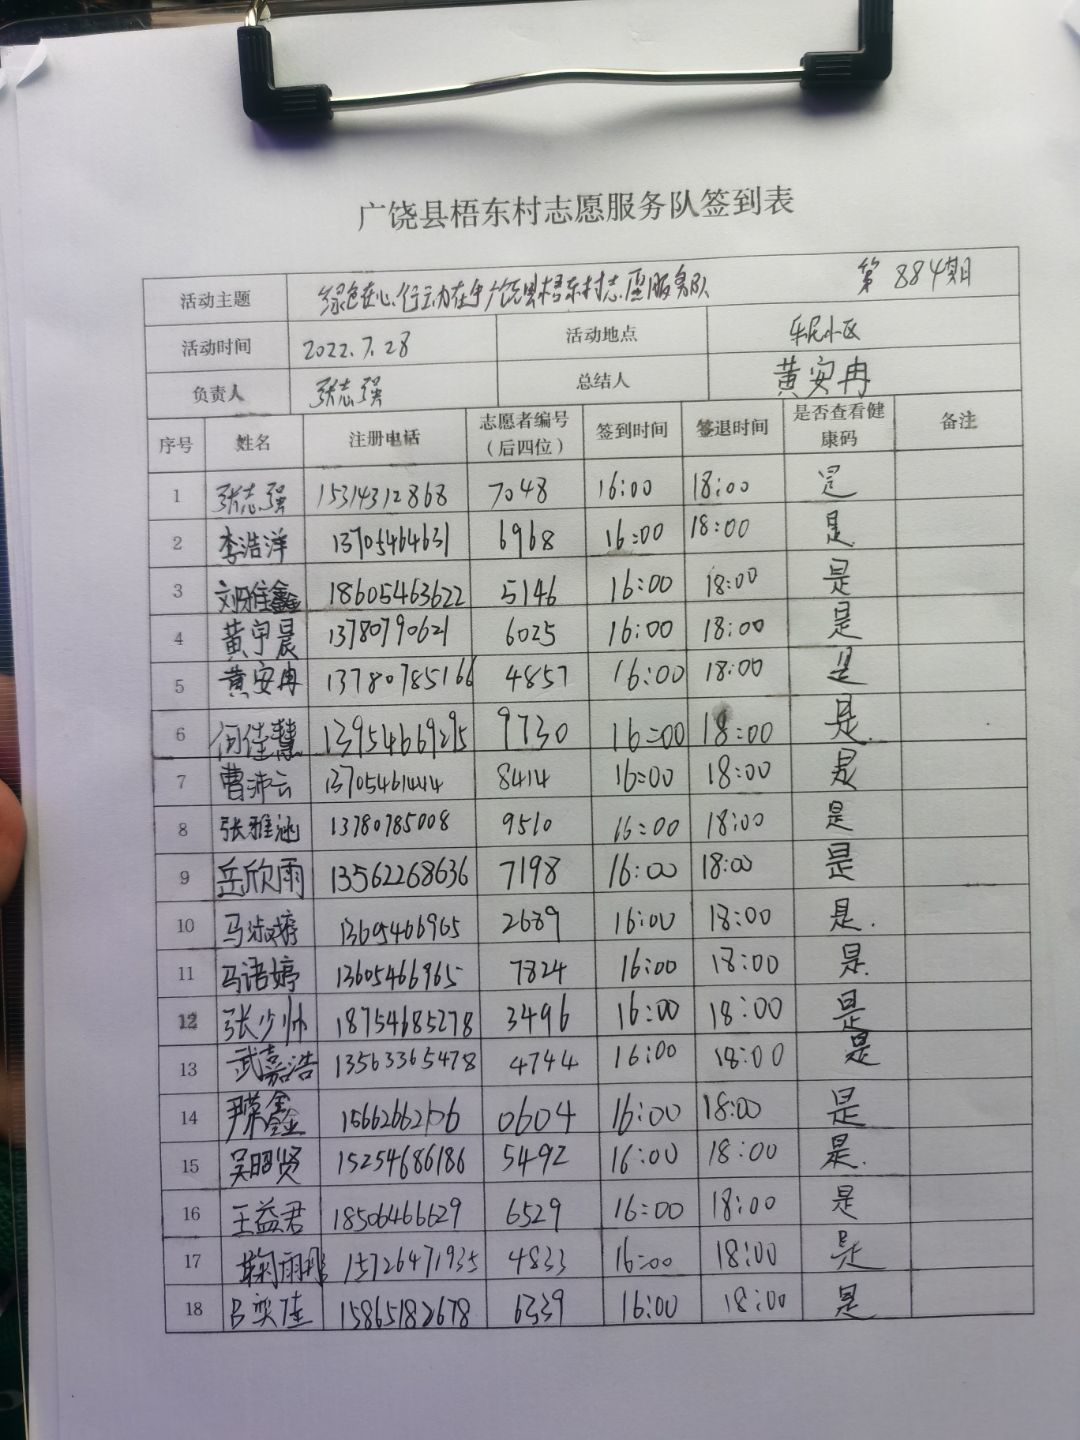 广饶县梧东村志愿服务队签到表
活动主题 绿色在心,行动在手广饶县梧东村志愿服务队 第884期
活动时间 2022.7.28 活动地点 乐民小区
负责人 张志强 总结人 黄安冉
序号 姓名 注册电话 志愿者编号(后四位) 签到时间 签退时间 是否查看健康码 备注
1 张志强 15314312868 7048 16:00 18:00 是
2 李浩洋 13705464631 6968 16:00 18:00 是
3 刘雅鑫 18605463622 5146 16:00 18:00 是
4 黄宇晨 13780790621 6025 16:00 18:00 是
5 黄安冉 13780785166 4857 16:00 18:00 是
6 何佳慧 13954669295 9730 16:00 18:00 是.
7 曹沛云 13705461444 8414 16:00 18:00 是
8 张雅涵 13780785008 9510 16:00 18:00 是
9 岳欣雨 13562268636 7198 16:00 18:00 是
10 马淑婷 13605466965 2689 16:00 18:00 是.
11 马语婷 13605466965 7824 16:00 18:00 是.
12 张少帅 18754685278 3496 16:00 18:00 是
13 武嘉浩 13563365478 4744 16:00 18:00 是
14 尹鑫 15662662106 0604 16:00 18:00 是
15 吴昭贤 15254686186 5492 16:00 18:00 是.
16 王益君 18506466629 6529 16:00 18:00 是
17 鞠雨彤 15726471935 4833 16:00 18:00 是
18 吕奕佳 15865182678 6339 16:00 18:00 是